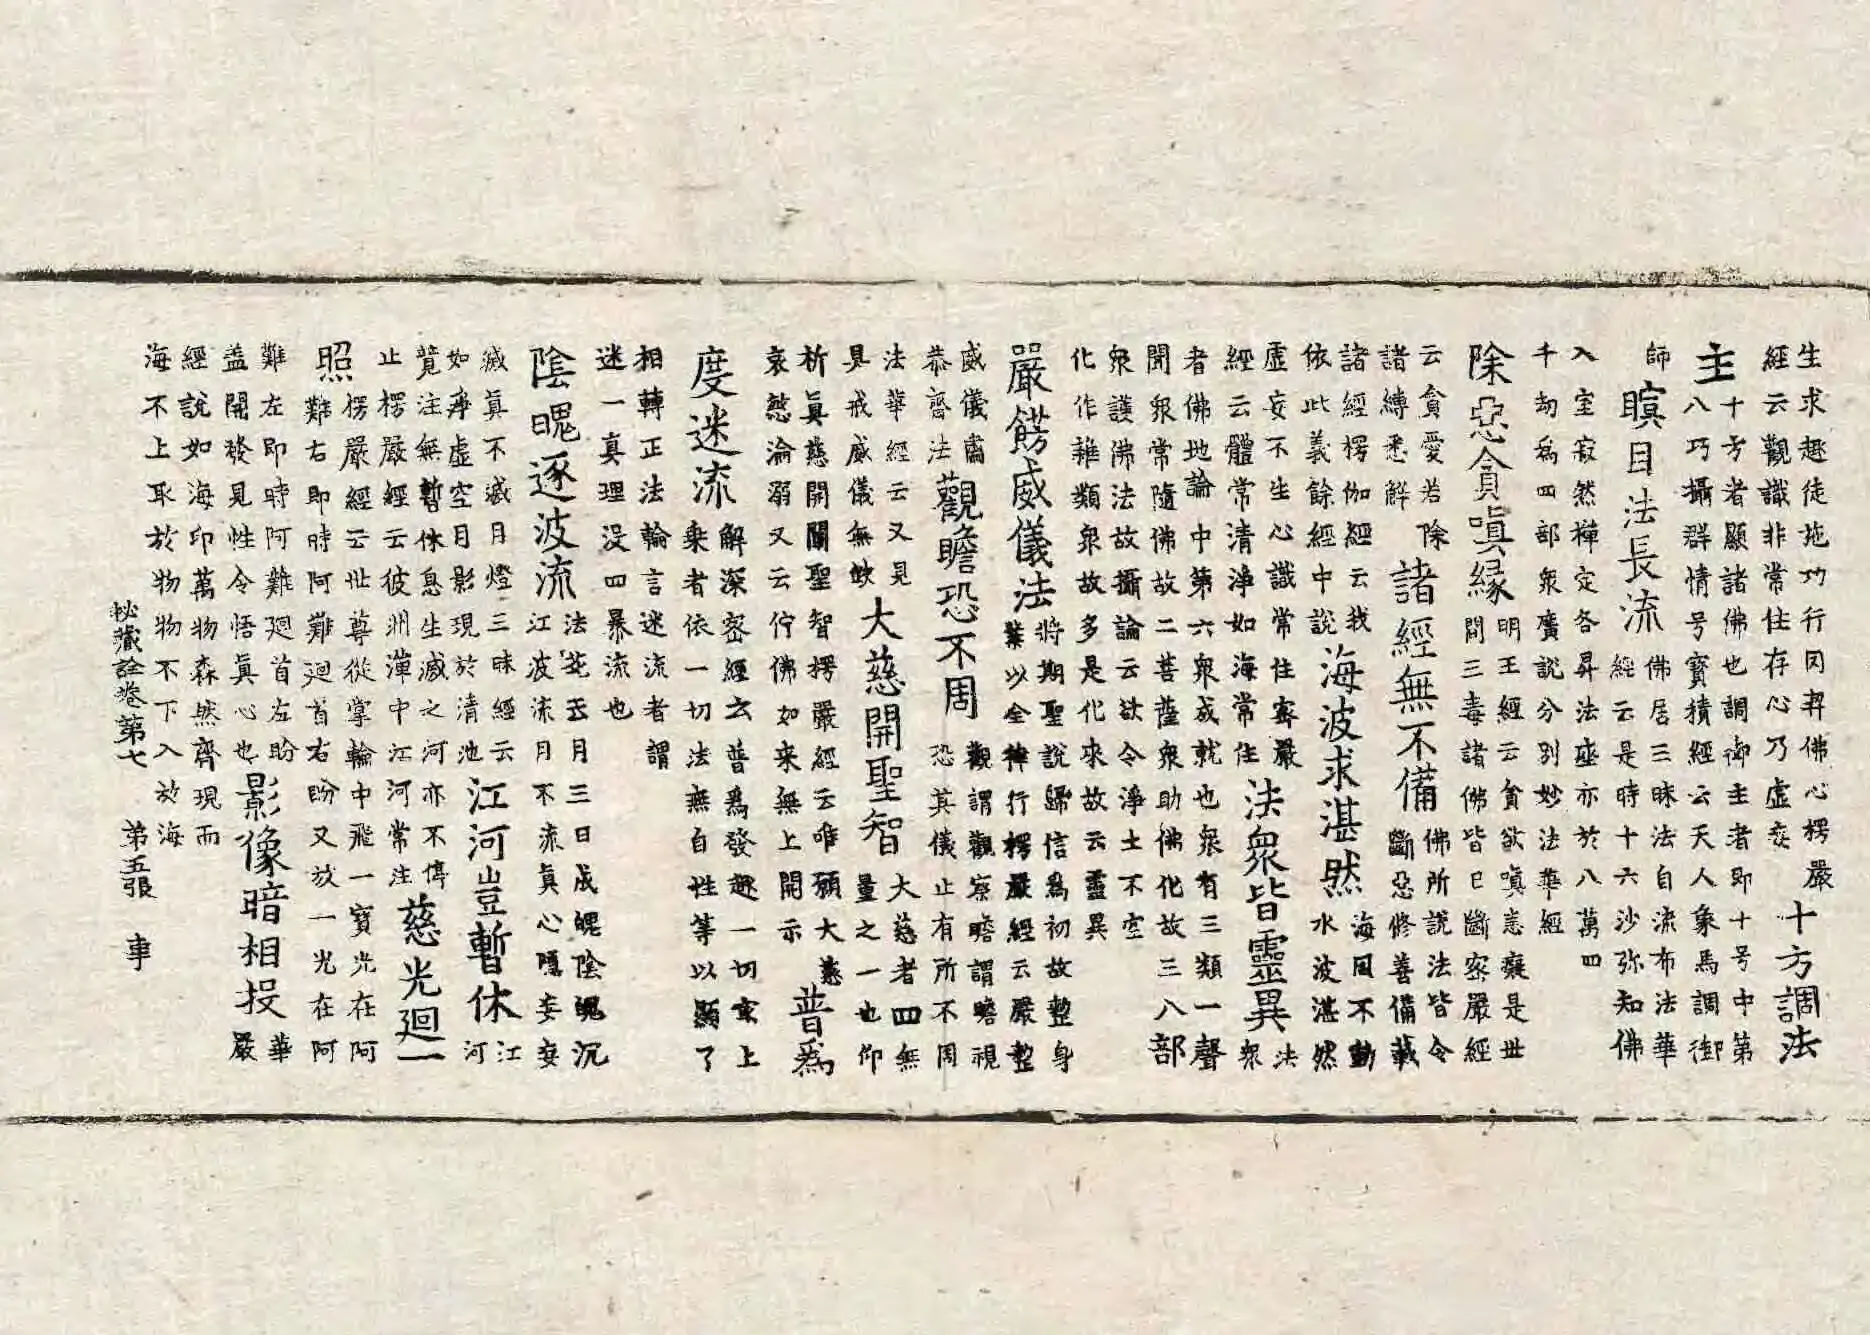 生求趣徒施功行罔契佛心楞嚴
經云觀識非常住存心乃虛妄
十方調法
主
十方者顯諸佛也調御主者即十号中第
八巧攝群情号寶積經云天人象馬調御
師
瞑目法長流
佛居三昧法自流布法華
經云是時十六沙弥知佛
入室寂然禪定各昇法座亦於八萬四
千劫爲四部衆廣說分别妙法華經
除惡貪嗔縁
明王經云貪欲嗔恚癡是世
間三毒諸佛皆已斷密嚴經
云貪愛若除
諸縛悉解
諸經無不備
佛所說法皆令
斷惡修善備載
諸經楞伽經云我
依此義餘經中說
海波求湛然
海因不動
水波湛然
虛妄不生心識常住密嚴
經云體常清淨如海常住
法衆皆靈異
法
衆
者佛地論中第六衆成就也衆有三類一聲
聞衆常隨佛故二菩薩衆助佛化故三八部
衆護佛法故攝論云欲令淨土不空
化作雜類衆故多是化來故云靈異
嚴餝威儀法
將期聖說歸信爲初故整身
業以全律行楞嚴經云嚴整
威儀肅
恭齊法
觀瞻恐不周
觀謂觀察瞻謂瞻視
恐其儀止有所不周
法華經云又見
具戒威儀無缺
大慈開聖智
大慈者四無
量之一也仰
析眞慈開闡聖智楞嚴經云唯願大慈
哀愍淪溺又云佇佛如来無上開示
普爲
度迷流
解深密經云普爲發趣一切乘上
乘者依一切法無自性等以顯了
相轉正法輪言迷流者謂
迷一真理没四暴流也
陰䰟逐波流
法苑云月三日成魄陰魄沉
江波流月不流眞心隱妄妄
滅眞不滅月燈三昧經云
如淨虛空月影現於清池
江河豈暫休
江
河
競注無暫休息生滅之河亦不停
止楞嚴經云彼洲潬中江河常注
慈光廻一
照
楞嚴經云世尊從掌輪中飛一寶光在阿
難右即時阿難廻首右盻又放一光在阿
難左即時阿難廻首左盻
盖開發見性令悟眞心也
影像暗相投
華
嚴
經說如海印萬物森然齊現而
海不上取於物物不下入於海
秘藏詮卷第七　第五張　事